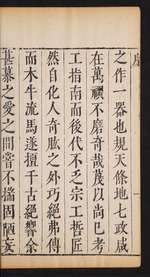 序
之作一器也規天條地七政咸
在萬禩不磨奇哉蔑以尚已考
工指南而後代不乏宗工哲匠
然自化人奇肱之外巧絕弗傳
而木牛流馬遂擅千古絕響余
甚慕之愛之間嘗不揣固陋妄